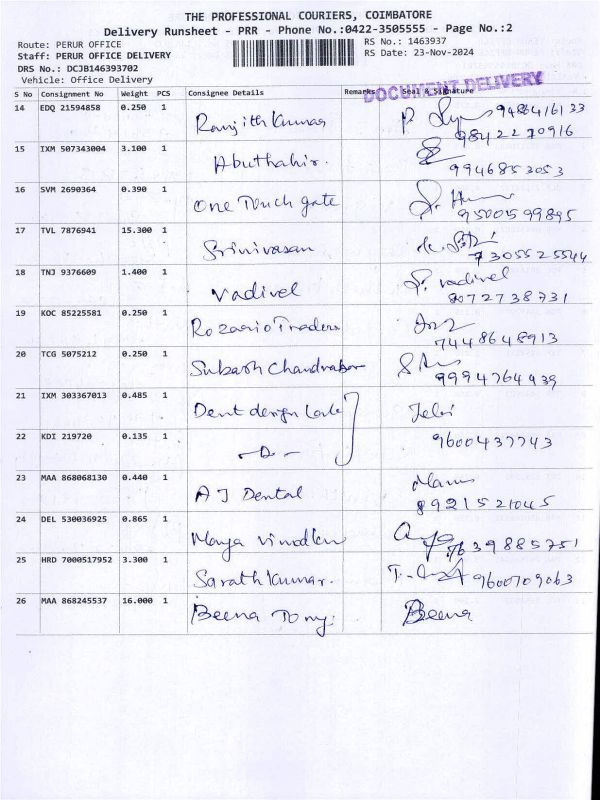 THE PROFESSIONAL COURIERS, COIMBATORE
Delivery Runsheet - PRR - Phone No.:0422-3505555 - Page No.:2
Route: PERUR OFFICE RS No.: 1463937
Staff: PERUR OFFICE DELIVERY RS Date: 23-Nov-2024
DRS No.: DCJB146393702
Vehicle: Office Delivery
DOCUMENT DELIVERY
S No Consignment No Weight PCS Consignee Details Remarks Seal & Signature
14 EDQ 21594858 0.250 1 Ranjith Kumar 9486416133
9842270916
15 IXM 507343004 3.100 1 Abuthahir.
9946853053
16 SVM 2690364 0.390 1 One Touch gate
9500599895
17 TVL 7876941 15.300 1 Srinivasan
7305525544
18 TNJ 9376609 1.400 1 Vadivel S. vadivel
8072738731
19 KOC 85225581 0.250 1 Rozario Traders
7448648913
20 TCG 5075212 0.250 1 Subash Chandrabose
9994764939
21 IXM 303367013 0.485 1 Dent design
22 KDI 219720 0.135 1 -D-
9600437743
23 MAA 868068130 0.440 1 A J Dental
8921521045
24 DEL 530036925 0.865 1 Maya
7639885751
25 HRD 7000517952 3.300 1 Sarath Kumar. 9600709063
26 MAA 868245537 16.000 1 Beena Tomy. Beena